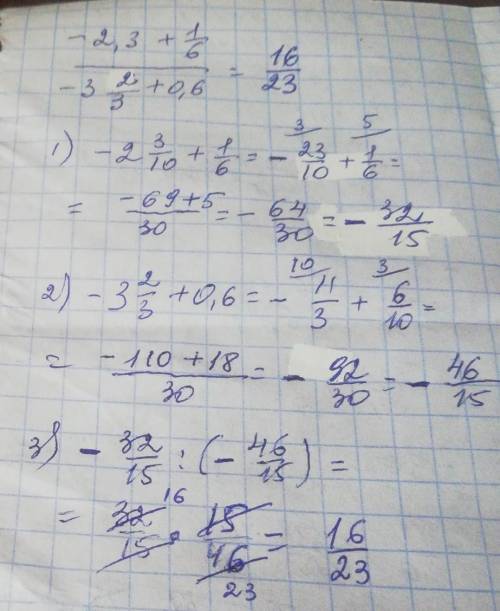 (-2,3 + 1/6) / (-3 2/3 + 0,6) = 16/23
1) -2 3/10 + 1/6 = - 23/10 (3) + 1/6 (5) =
= (-69+5)/30 = - 64/30 = - 32/15
2) -3 2/3 + 0,6 = - 11/3 (10) + 6/10 (3) =
= (-110+18)/30 = - 92/30 = - 46/15
3) - 32/15 : (- 46/15) =
= 32/15 (16) · 15/46 (23) = 16/23